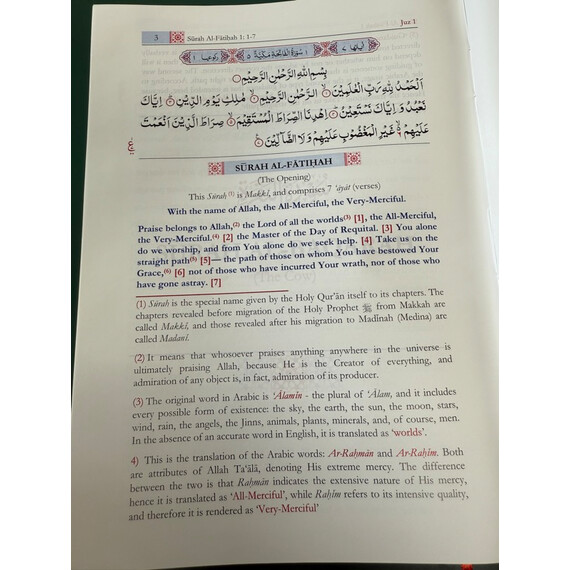 3 Sūrah Al-Fātiḥah 1: 1-7 Juz 1
اٰیاتھا ٧ ١ سُوْرَةُ الْفَاتِحَةِ مَكِّيَّةٌ ٥ رکوعھا ١
بِسْمِ اللّٰهِ الرَّحْمٰنِ الرَّحِيْمِ
اَلْحَمْدُ لِلّٰهِ رَبِّ الْعٰلَمِيْنَ ۙ الرَّحْمٰنِ الرَّحِيْمِ ۙ مٰلِكِ يَوْمِ الدِّيْنِ ؕ اِيَّاكَ
نَعْبُدُ وَ اِيَّاكَ نَسْتَعِيْنُ ؕ اِهْدِنَا الصِّرَاطَ الْمُسْتَقِيْمَ ۙ صِرَاطَ الَّذِيْنَ اَنْعَمْتَ
عَلَيْهِمْ ۙ غَيْرِ الْمَغْضُوْبِ عَلَيْهِمْ وَ لَا الضَّآلِّيْنَ
ع
SŪRAH AL-FĀTIḤAH
(The Opening)
This Sūrah (1) is Makkī, and comprises 7 'āyāt (verses)
With the name of Allah, the All-Merciful, the Very-Merciful.
Praise belongs to Allah,(2) the Lord of all the worlds(3) [1], the All-Merciful,
the Very-Merciful.(4) [2] the Master of the Day of Requital. [3] You alone
do we worship, and from You alone do we seek help. [4] Take us on the
straight path(5) [5]— the path of those on whom You have bestowed Your
Grace,(6) [6] not of those who have incurred Your wrath, nor of those who
have gone astray. [7]
(1) Sūrah is the special name given by the Holy Qur'ān itself to its chapters. The
chapters revealed before migration of the Holy Prophet ﷺ from Makkah are
called Makkī, and those revealed after his migration to Madīnah (Medina) are
called Madanī.
(2) It means that whosoever praises anything anywhere in the universe is
ultimately praising Allah, because He is the Creator of everything, and
admiration of any object is, in fact, admiration of its producer.
(3) The original word in Arabic is 'Ālamīn - the plural of 'Ālam, and it includes
every possible form of existence: the sky, the earth, the sun, the moon, stars,
wind, rain, the angels, the Jinns, animals, plants, minerals, and, of course, men.
In the absence of an accurate word in English, it is translated as 'worlds'.
4) This is the translation of the Arabic words: Ar-Raḥmān and Ar-Raḥīm. Both
are attributes of Allah Ta'ālā, denoting His extreme mercy. The difference
between the two is that Raḥmān indicates the extensive nature of His mercy,
hence it is translated as 'All-Merciful', while Raḥīm refers to its intensive quality,
and therefore it is rendered as 'Very-Merciful'